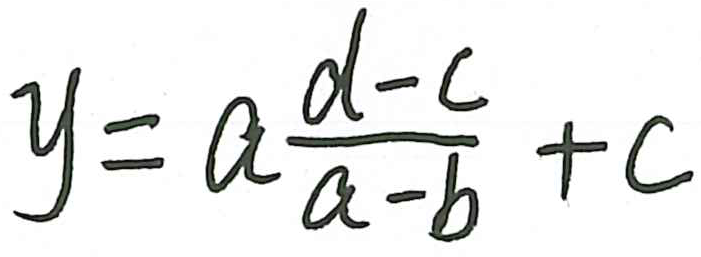 y = a \frac{d-c}{a-b} + c